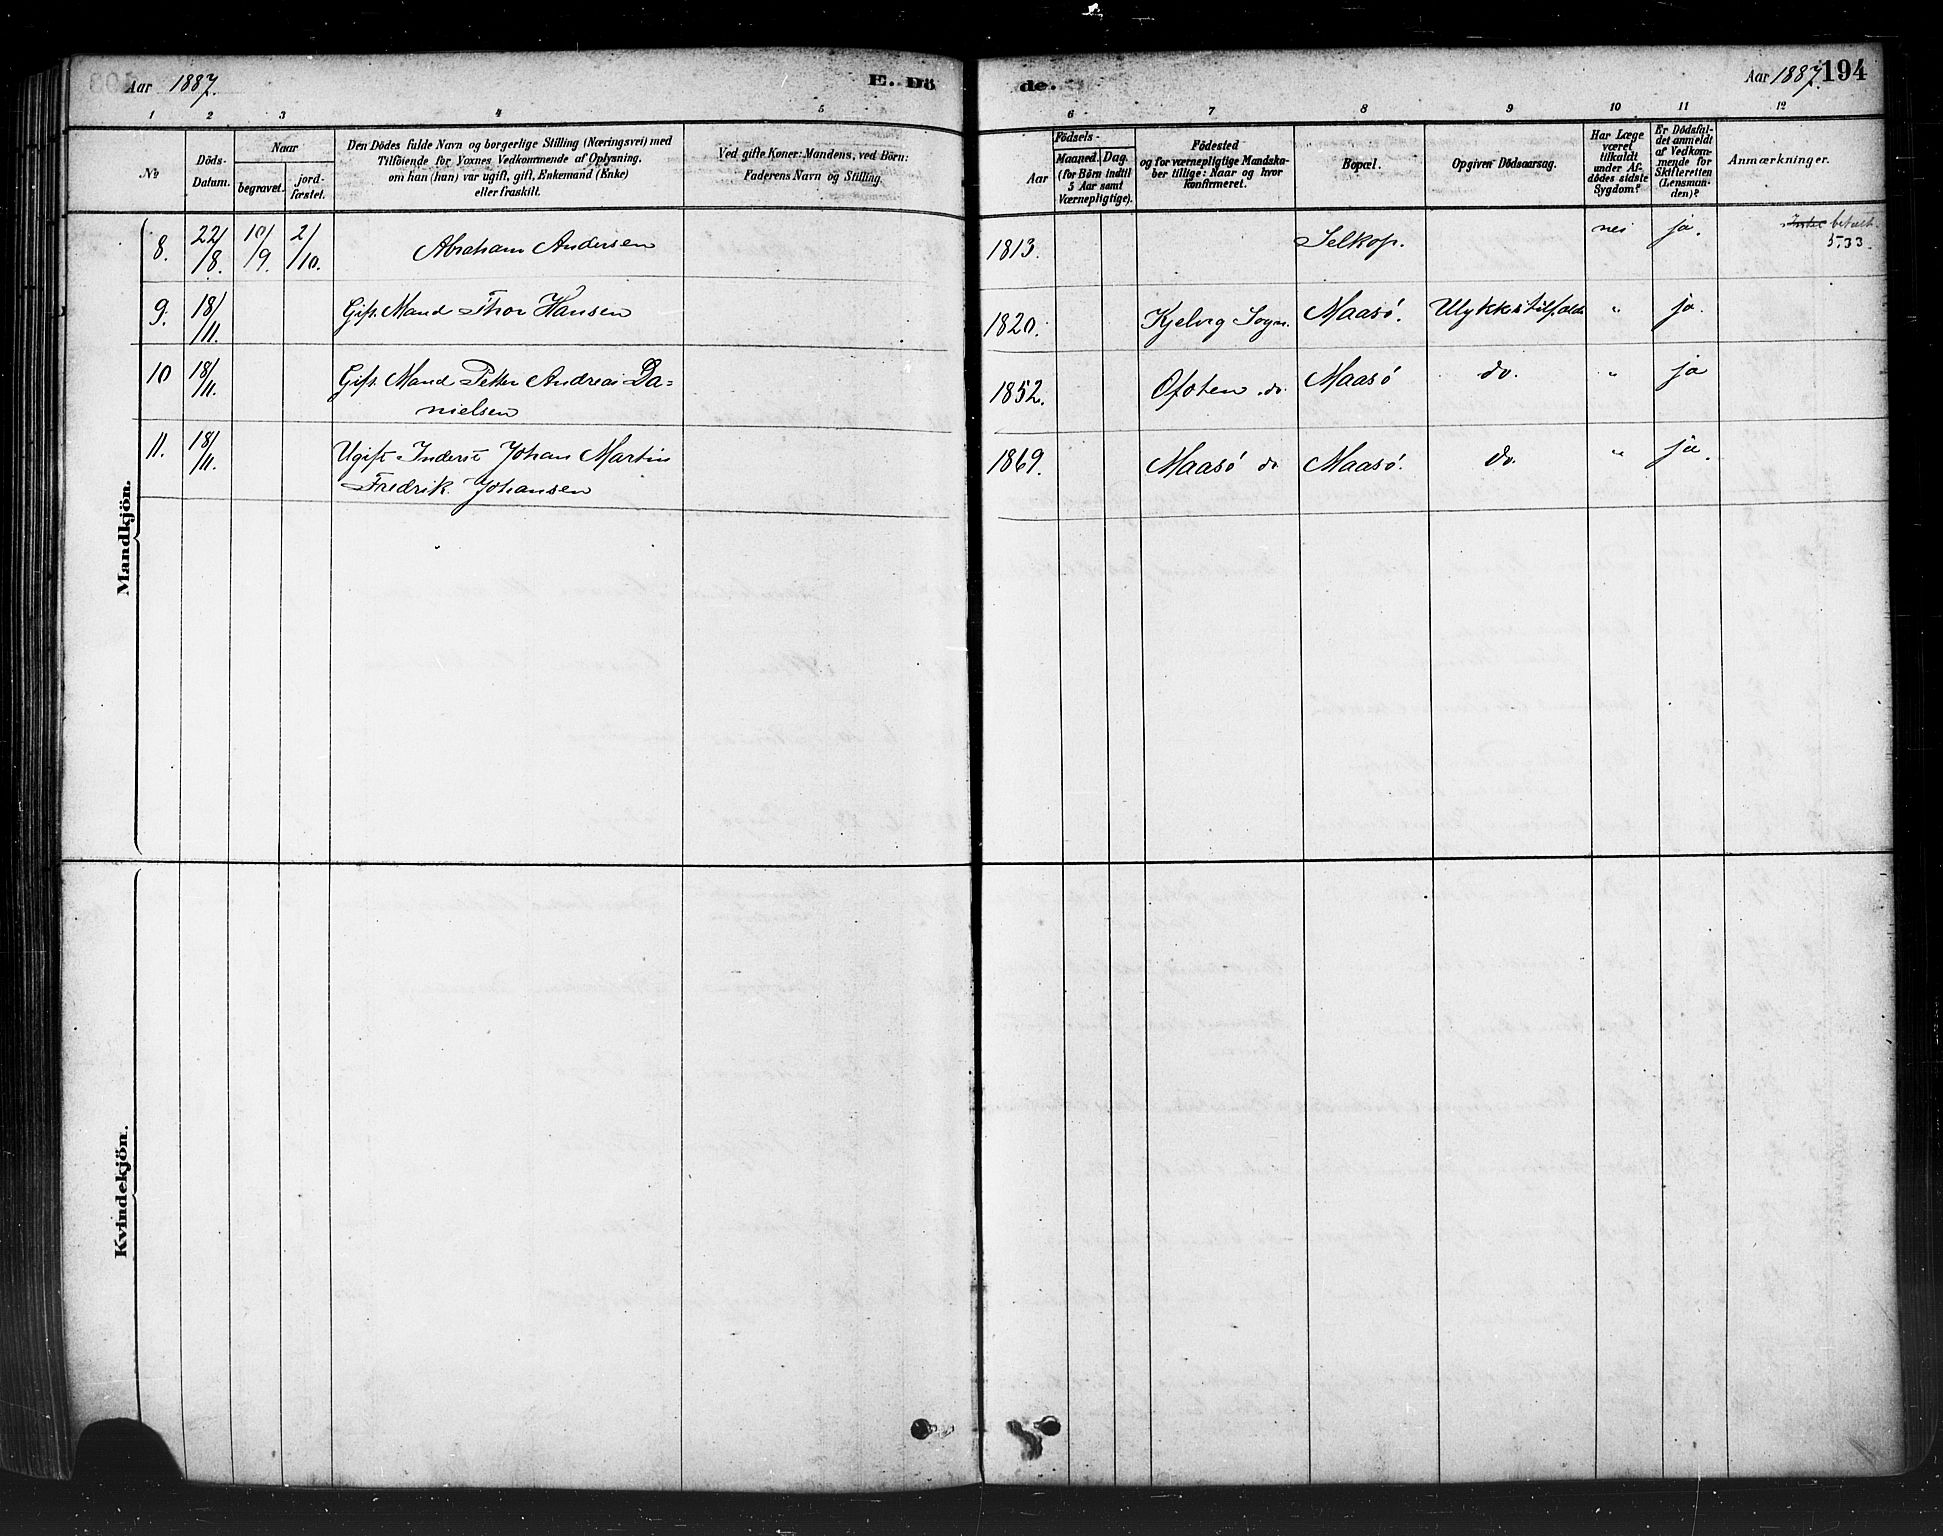 Aar 1887. E. Dö de. Aar 1887. 194
1 2 3 4 5 6 7 8 9 10 11 12
No
Döds-Datum.
Naar
begravet.
jord-fæstet.
Den Dödes fulde Navn og borgerlige Stilling (Næringsvei) med
Tilföiende for Voxnes Vedkommende af Oplysning,
om han (hun) var ugift, gift, Enkemand (Enke)
eller fraskilt.
Ved gifte Koner: Mandens, ved Börn:
Faderens Navn og Stilling.
Födsels-
Aar
Maaned. Dag.
(for Börn indtil
5 Aar samt
Værnepligtige).
Födested
og for værnepligtige Mandska-
ber tillige: Naar og hvor
konfirmeret.
Bopæl.
Opgiven Dödsaarsag.
Har Læge
været
tilkaldt
under Af-
dödes sidste
Sygdom?
Er Dödsfal-
det anmeldt
af Vedkom-
mende for
Skifteretten
(Lensman-
den)?
Anmærkninger.
Mandkjön.
8. 22/8. 10/9. 2/10. Abraham Andersen 1813. Selkop. nei ja. betalt.
5.33.
9. 18/11. Gift. Mand Thor Hansen 1820. Kjelvig Sogn. Maasö. Ulykkestilfælde " ja.
10 18/11. Gift. Mand Petter Andreas Da=
nielsen 1852. Ofoten do. Maasö do. " ja
11. 18/11. Ugift Inderst Johan Martin
Fredrik Johansen 1869. Maasö do Maasö. do. " ja.
Kvindekjön.